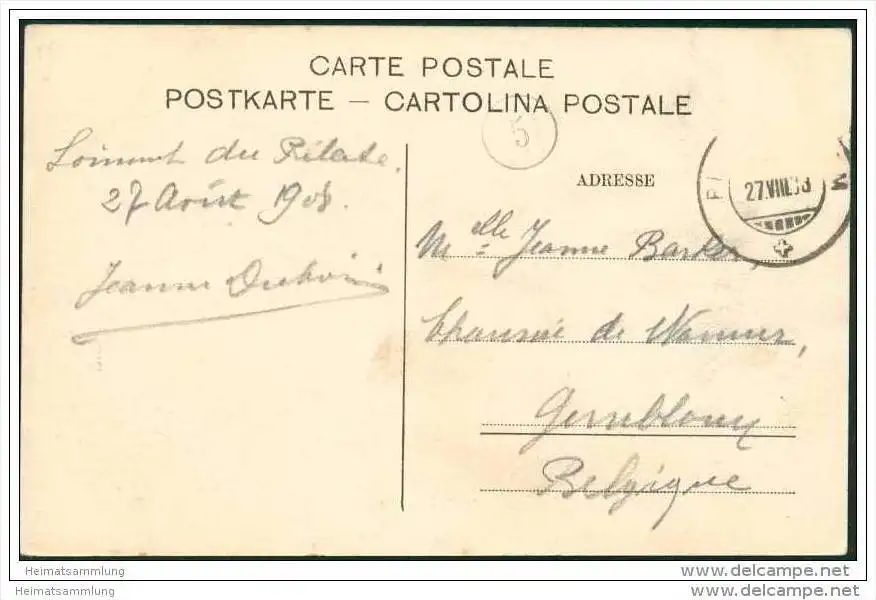 CARTE POSTALE
POSTKARTE – CARTOLINA POSTALE
5
ADRESSE
27.VIII.
du Pilate.
27 Août 1908.
Jeanne Dubois
Mlle Jeanne Barker,
Chaussée de Wavre,
Gembloux
Belgique
Heimatsammlung
Heimatsammlung
www.delcampe.net
www.delcampe.net